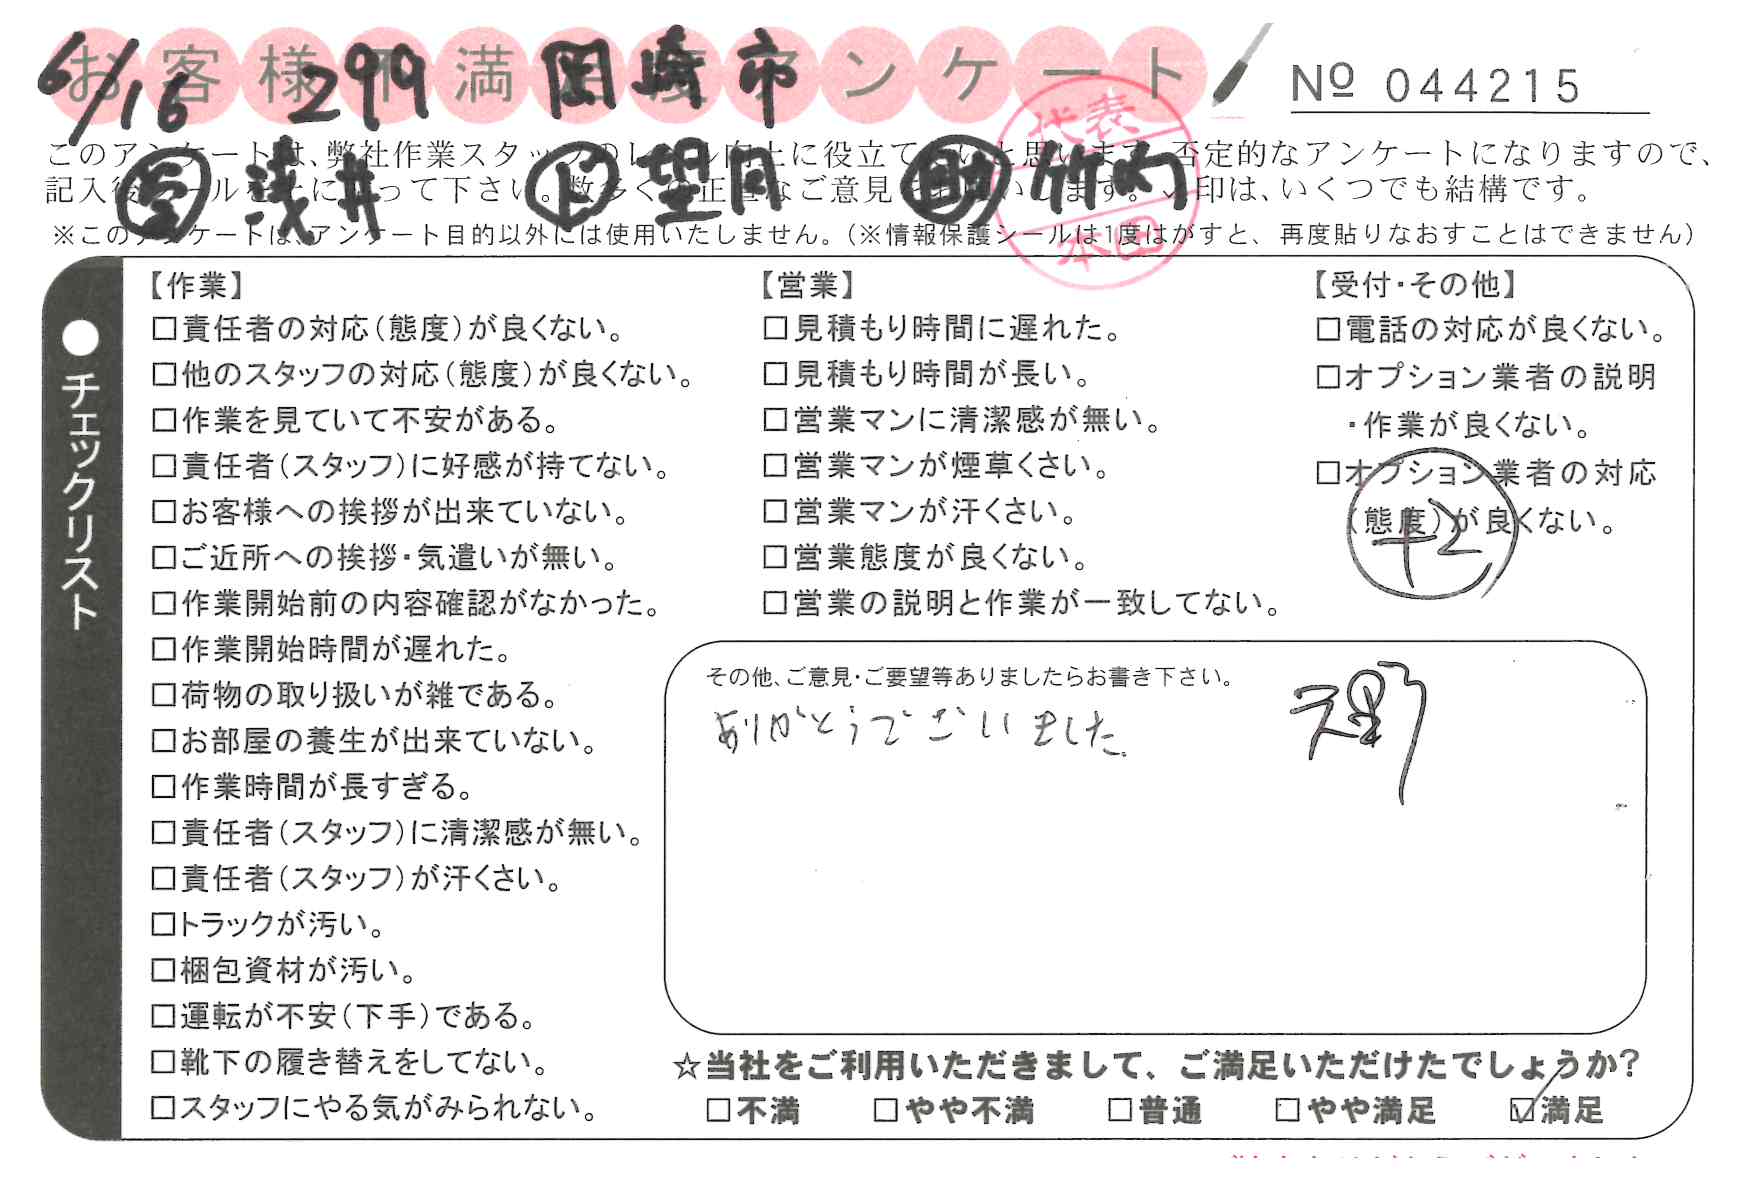 お客様不満足度アンケート
№ 044215
6/16 299 岡崎市
このアンケートは、弊社作業スタッフのレベル向上に役立てたいと思います。否定的なアンケートになりますので、
営 浅井 上 望月 助 竹内
記入後シールを上にはって下さい。数多くの正直なご意見をお願いします。✓印は、いくつでも結構です。
※このアンケートは、アンケート目的以外には使用いたしません。（※情報保護シールは1度はがすと、再度貼りなおすことはできません）
代表
本田
●チェックリスト
【作業】
□責任者の対応（態度）が良くない。
□他のスタッフの対応（態度）が良くない。
□作業を見ていて不安がある。
□責任者（スタッフ）に好感が持てない。
□お客様への挨拶が出来ていない。
□ご近所への挨拶・気遣いが無い。
□作業開始前の内容確認がなかった。
□作業開始時間が遅れた。
□荷物の取り扱いが雑である。
□お部屋の養生が出来ていない。
□作業時間が長すぎる。
□責任者（スタッフ）に清潔感が無い。
□責任者（スタッフ）が汗くさい。
□トラックが汚い。
□梱包資材が汚い。
□運転が不安（下手）である。
□靴下の履き替えをしてない。
□スタッフにやる気がみられない。
【営業】
□見積もり時間に遅れた。
□見積もり時間が長い。
□営業マンに清潔感が無い。
□営業マンが煙草くさい。
□営業マンが汗くさい。
□営業態度が良くない。
□営業の説明と作業が一致してない。
【受付・その他】
□電話の対応が良くない。
□オプション業者の説明
・作業が良くない。
□オプション業者の対応
（態度）が良くない。
+2
その他、ご意見・ご要望等ありましたらお書き下さい。
ありがとうございました
☆当社をご利用いただきまして、ご満足いただけたでしょうか?
□不満 □やや不満 □普通 □やや満足 ☑満足